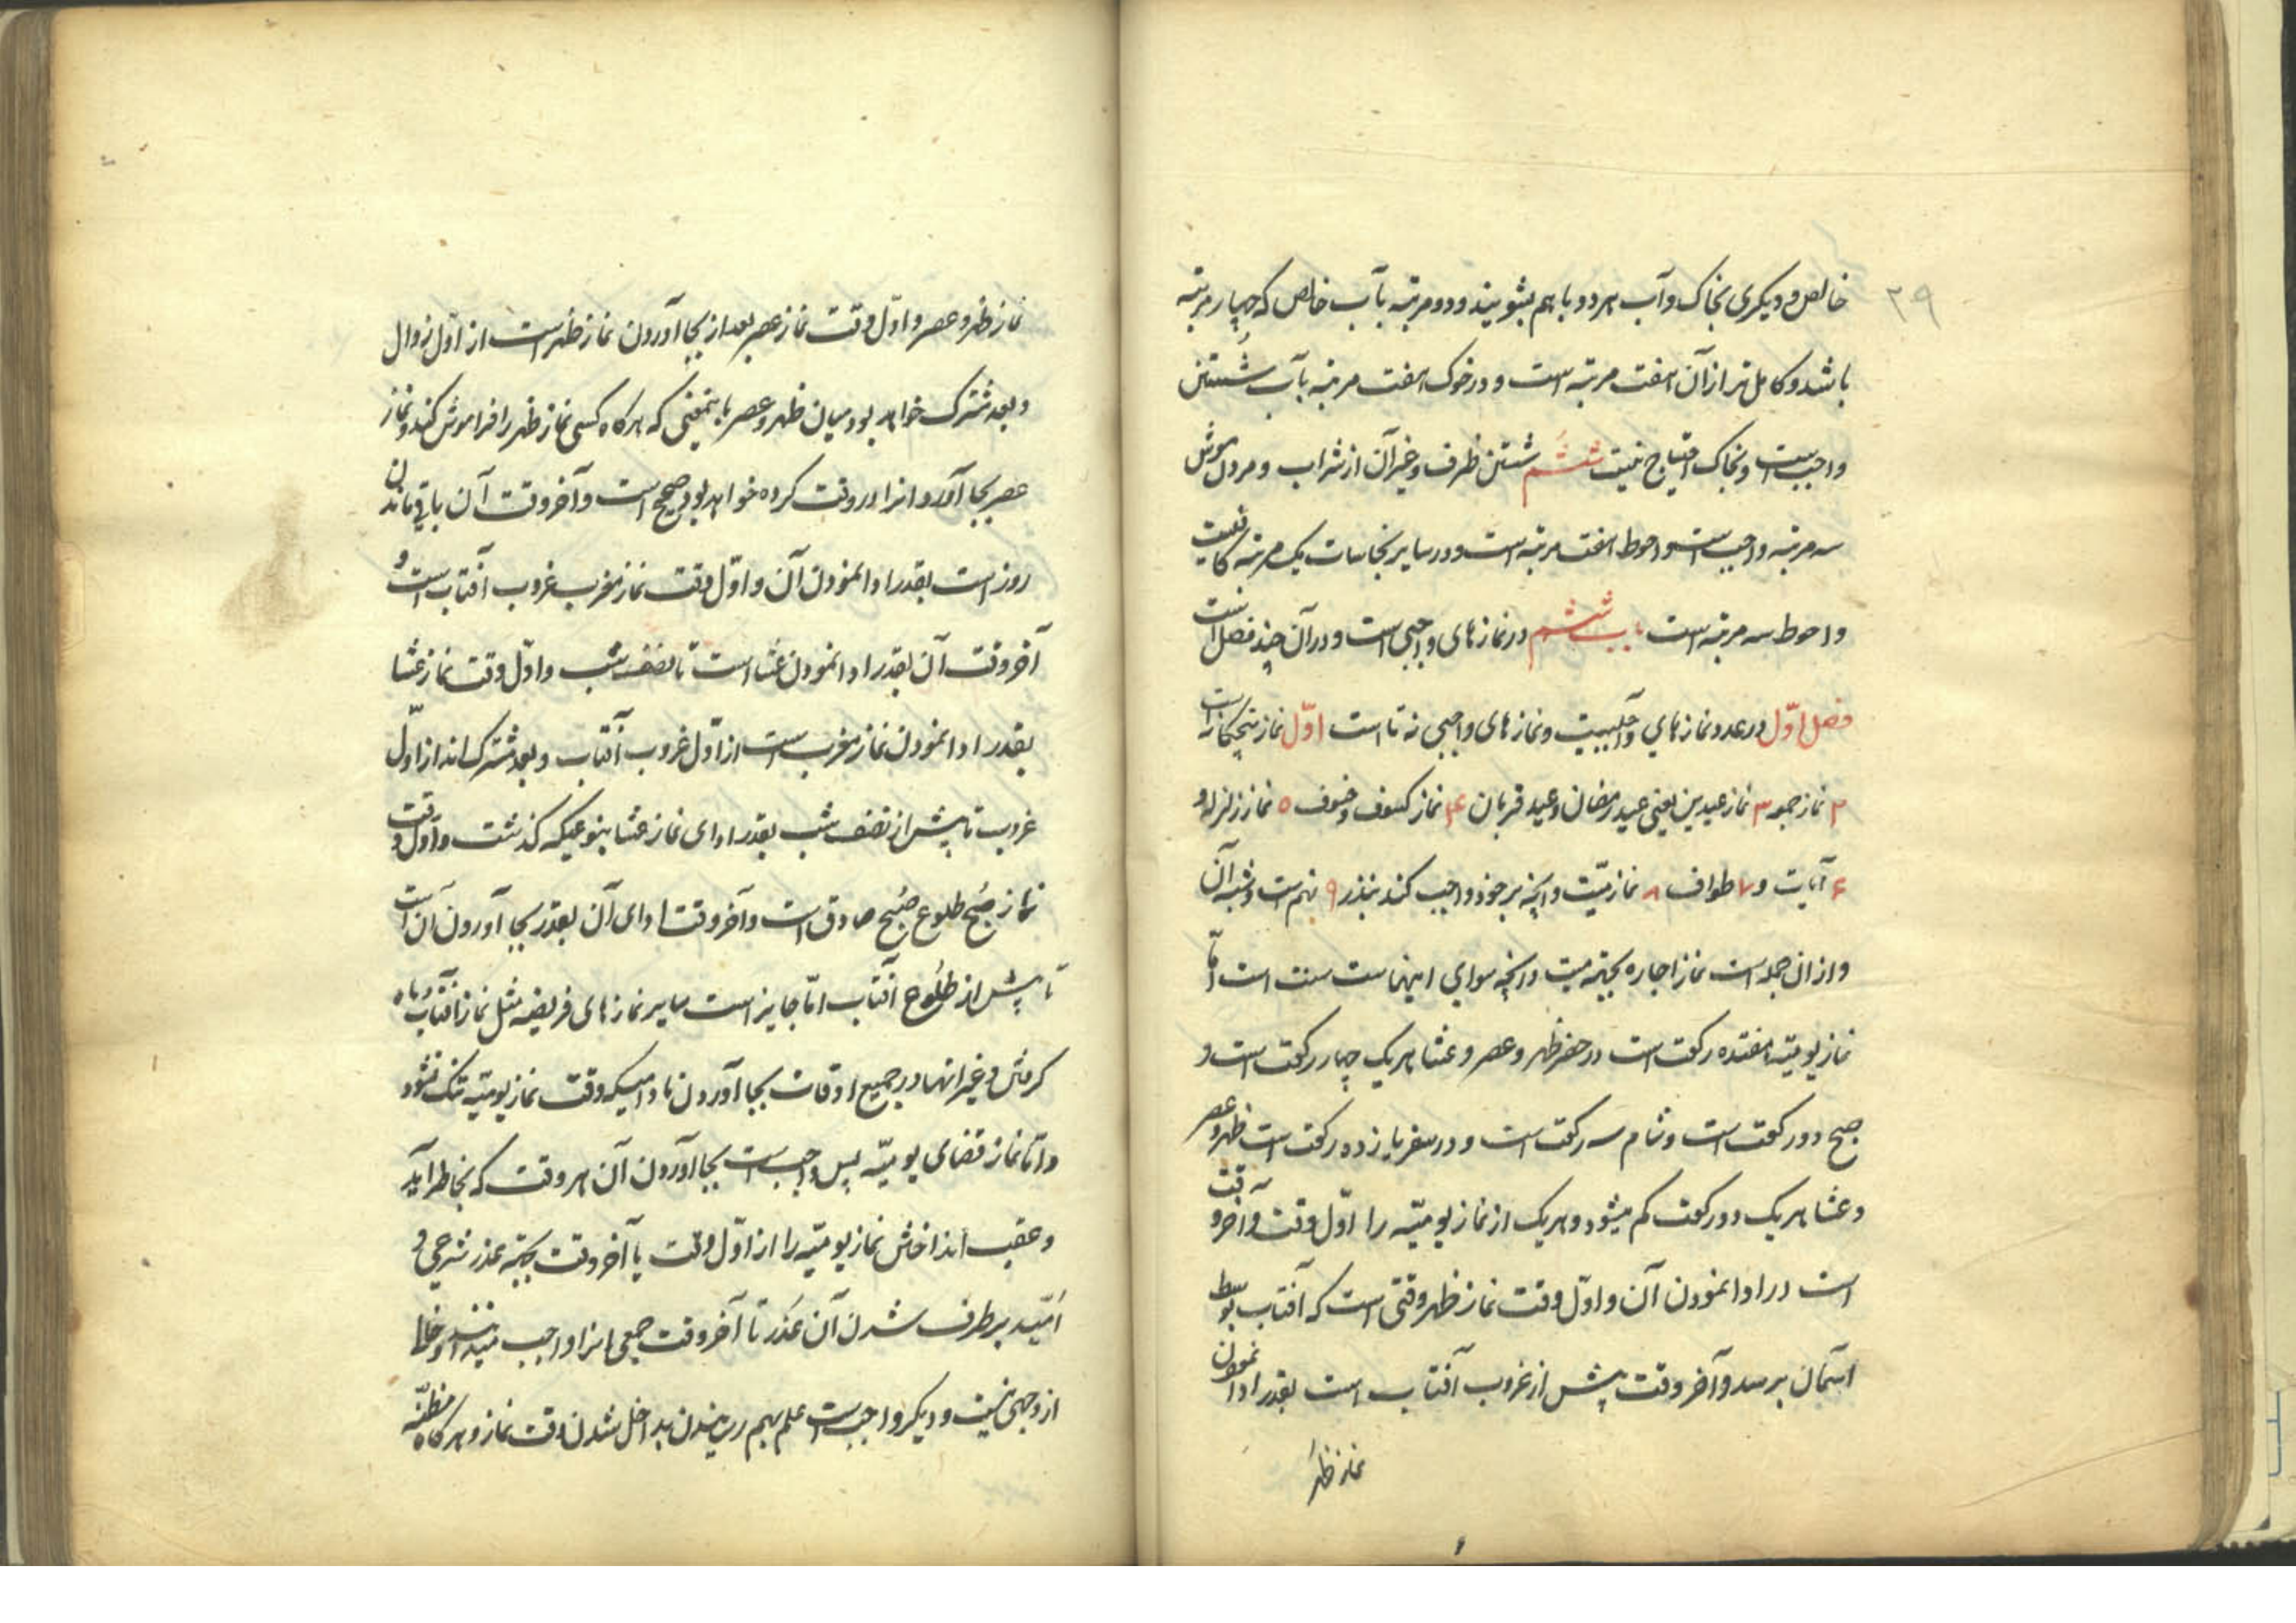 ۲۹
خالص و دیکری بخاک و آب هر دو با هم بشویند و دو مرتبه بآب خالص که چهار مرتبه
باشد و کامل تر از آن هفت مرتبه است و در خوک هفت مرتبه بآب شُستن
واجبست و بخاک احتیاج نیست ششم شستن ظرف و غیر آن از شراب و مردن موش
سه مرتبه واجبست و احوط هفت مرتبه است و در سایر نجاسات یک مرتبه کافیست
و احوط سه مرتبه است باب ششم در نمازهای واجبی است و در آن چند فصل است
فصل اوّل در عدد نمازهای واجبیست و نمازهای واجبی نه تا است اوّل نماز پنجکانه است
۲ نماز جمعه ۳ نماز عیدین یعنی عید رمضان و عید قربان ۴ نماز کسوف و خسوف ۵ نماز زلزله و
۶ آیات و ۷ طواف ۸ نماز میّت و آنچه بر خود واجب کند بنذر ۹ نهم است و شبه آن
و از ان جمله است نماز اجاره بجهة میت و آنچه سوای اینهاست سنت است امّا
نماز یومیّه هفتده رکعت است در حضر ظهر و عصر و عشا هر یک چهار رکعت است و
صبح دو رکعت است و شام سه رکعت است و در سفر یازده رکعت است ظهر و عصر
و عشا هر یک دو رکعت کم میشود و هر یک از نماز یومیّه را اوّل وقت و آخر وقت
است در ادا نمودن آن و اوّل وقت نماز ظهر وقتی است که آفتاب بوسط
اسمان برسد و آخر وقت پیش از غروب آفتاب است بقدر ادا نمودن
نماز ظهر
نماز ظهر و عصر و اوّل وقت نماز عصر بعد از بجا آوردن نماز ظهر است از اوّل زوال
و بعد مشترک خواهد بود میان ظهر و عصر باینمعنی که هر کاه کسی نماز ظهر را فراموش کند و نماز
عصر بجا آورد انرا در وقت کرده خواهد بود و صحیح است و آخر وقت آن باقی ماندن
روز است بقدر ادا نمودن آن و اوّل وقت نماز مغرب غروب آفتاب است و
آخر وقت آن بقدر ادا نمودن عشا است تا نصف شب و اوّل وقت نماز عشا
بقدر ادا نمودن نماز مغرب است از اوّل غروب آفتاب و بعد مشترک اند از اوّل
غروب تا پیش از نصف شب بقدر ادای نماز عشا بنوعیکه کذشت و اوّل وقت
نماز صُبح طلوع صُبح صادق است و آخر وقت ادای آن بقدر بجا آوردن آن است
تا پیش از طلُوع آفتاب امّا جایز است سایر نمازهای فریضه مثل نماز آفتاب و ماه
کرفتن و غیر انها در جمیع اوقات بجا آوردن مادامیکه وقت نماز یومیّه تنک نشود
و امّا نماز قضای یومیّه پس واجب است بجا آوردن آن هر وقت که بخاطر آید
و عقب انداختن نماز یومیّه را از اوّل وقت یا آخر وقت بجهة عذر شرعی و
اُمّید بر طرف شدن آن عُذر تا آخر وقت جمعی انرا واجب میدانند و خلا
از وجهی نیست و دیکر واجبست علم بهم رسانیدن بداخل شدن وقت نماز و هر کاه مظنّه